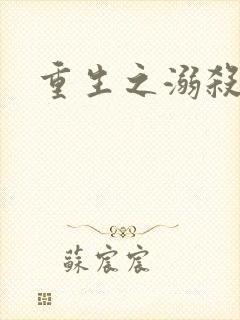 重生之溺殺
蘇宸宸